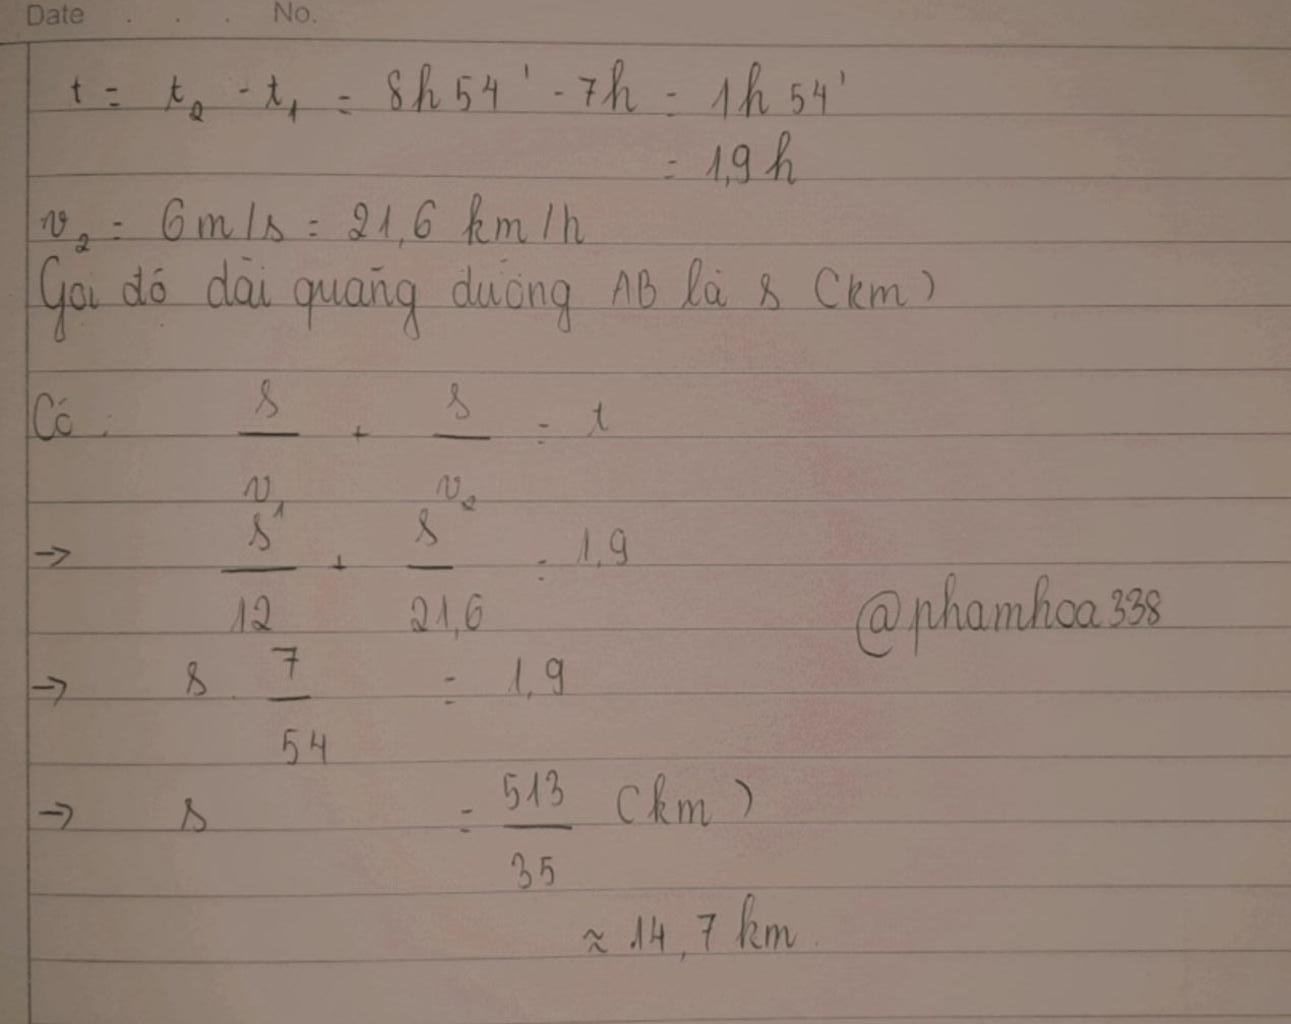 Date . . . No.
t = t₂ - t₁ = 8h 54' - 7h = 1h 54'
= 1,9 h
v₂ = 6 m/s = 21,6 km/h
Gọi độ dài quãng đường AB là s (km)
Có : s/v₁ + s/v₂ = t
→ s/12 + s/21,6 = 1,9
@phamhoa338
→ s . 7/54 = 1,9
→ s = 513/35 (km)
≈ 14,7 km.